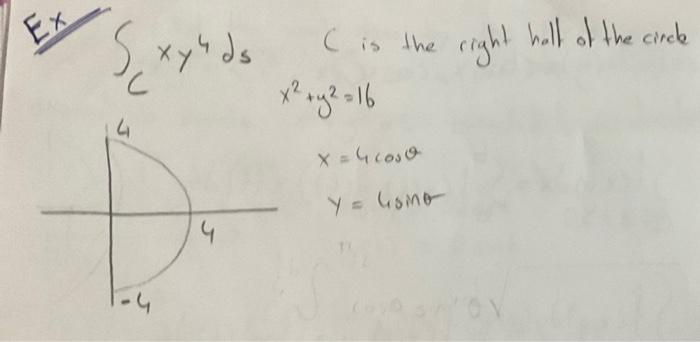 Ex
∫_C xy⁴ ds C is the right half of the circle
x²+y²=16
x = 4cosθ
y = 4sinθ
4
4
-4